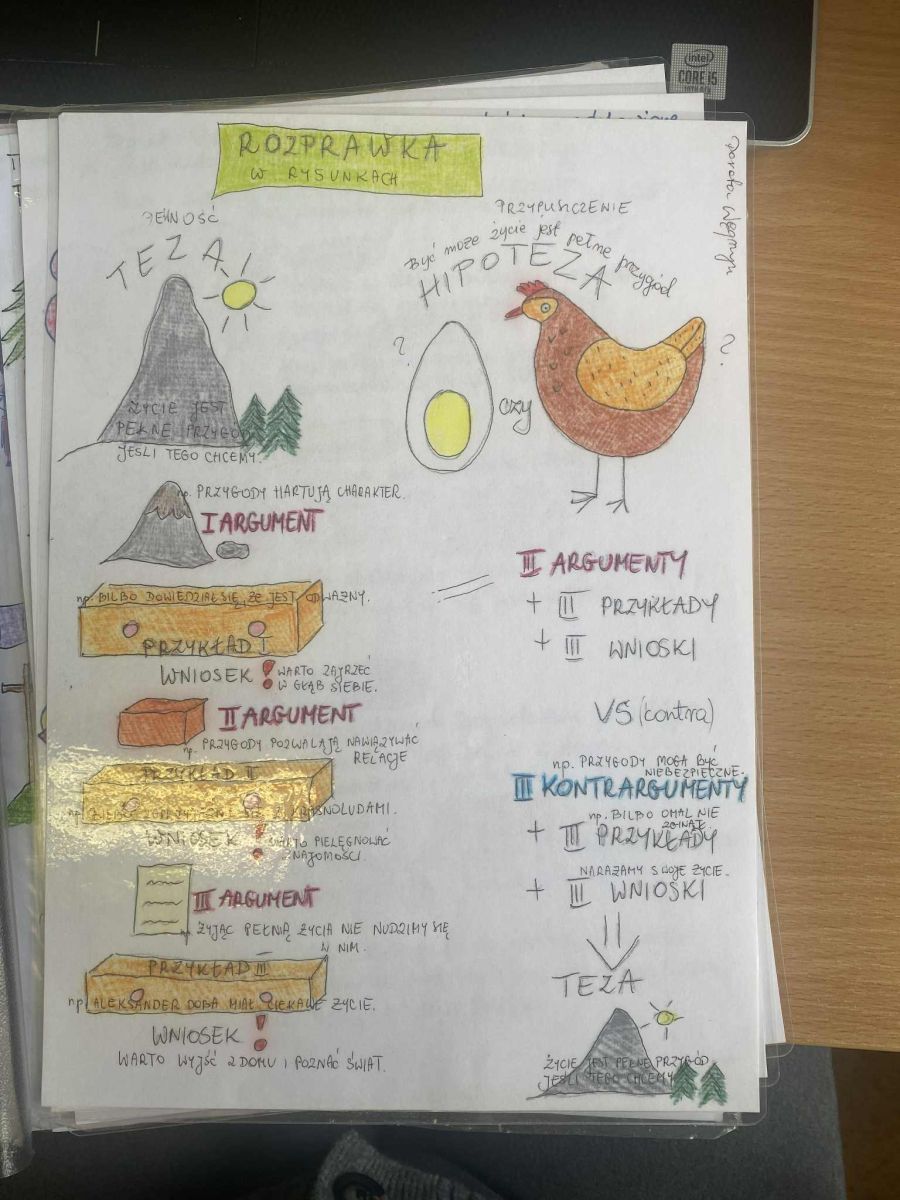 intel
CORE i5
ROZPRAWKA
W RYSUNKACH
PEWNOŚĆ
TEZA
ŻYCIE JEST
PEŁNE PRZYGÓD
JEŚLI TEGO CHCEMY.
np. PRZYGODY HARTUJĄ CHARAKTER.
I ARGUMENT
np. BILBO DOWIEDZIAŁ SIĘ, ŻE JEST ODWAŻNY.
PRZYKŁAD I
WNIOSEK ! WARTO ZAJRZEĆ
W GŁĄB SIEBIE.
II ARGUMENT
np. PRZYGODY POZWALAJĄ NAWIĄZYWAĆ
RELACJE
PRZYKŁAD II
np. BILBO SIĘ Z KRASNOLUDAMI.
WNIOSEK ! WARTO PIELĘGNOWAĆ
ZNAJOMOŚCI.
III ARGUMENT
np. ŻYJĄC PEŁNIĄ ŻYCIA NIE NUDZIMY SIĘ
W NIM.
PRZYKŁAD III
np. ALEKSANDER DOBA MIAŁ CIEKAWE ŻYCIE.
WNIOSEK !
WARTO WYJŚĆ Z DOMU I POZNAĆ ŚWIAT.
PRZYPUSZCZENIE
Być może życie jest pełne przygód
HIPOTEZA
? czy ?
III ARGUMENTY
+ III PRZYKŁADY
+ III WNIOSKI
VS (contra)
np. PRZYGODY MOGĄ BYĆ
NIEBEZPIECZNE.
III KONTRARGUMENTY
np. BILBO OMAL NIE
ZGINĄŁ
+ III PRZYKŁADY
NARAŻAMY SWOJE ŻYCIE.
+ III WNIOSKI
TEZA
ŻYCIE JEST PEŁNE PRZYGÓD
JEŚLI TEGO CHCEMY
Dorota Węgrzyn